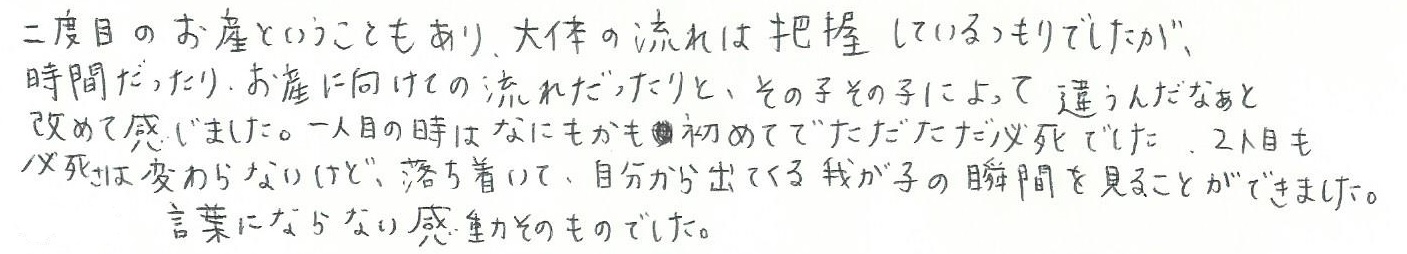 二度目のお産ということもあり、大体の流れは把握しているつもりでしたが、
時間だったり、お産に向けての流れだったりと、その子その子によって違うんだなぁと
改めて感じました。一人目の時はなにもかも初めてでただただ必死でした、2人目も
必死さは変わらないけど、落ち着いて、自分から出てくる我が子の瞬間を見ることができました。
言葉にならない感動そのものでした。